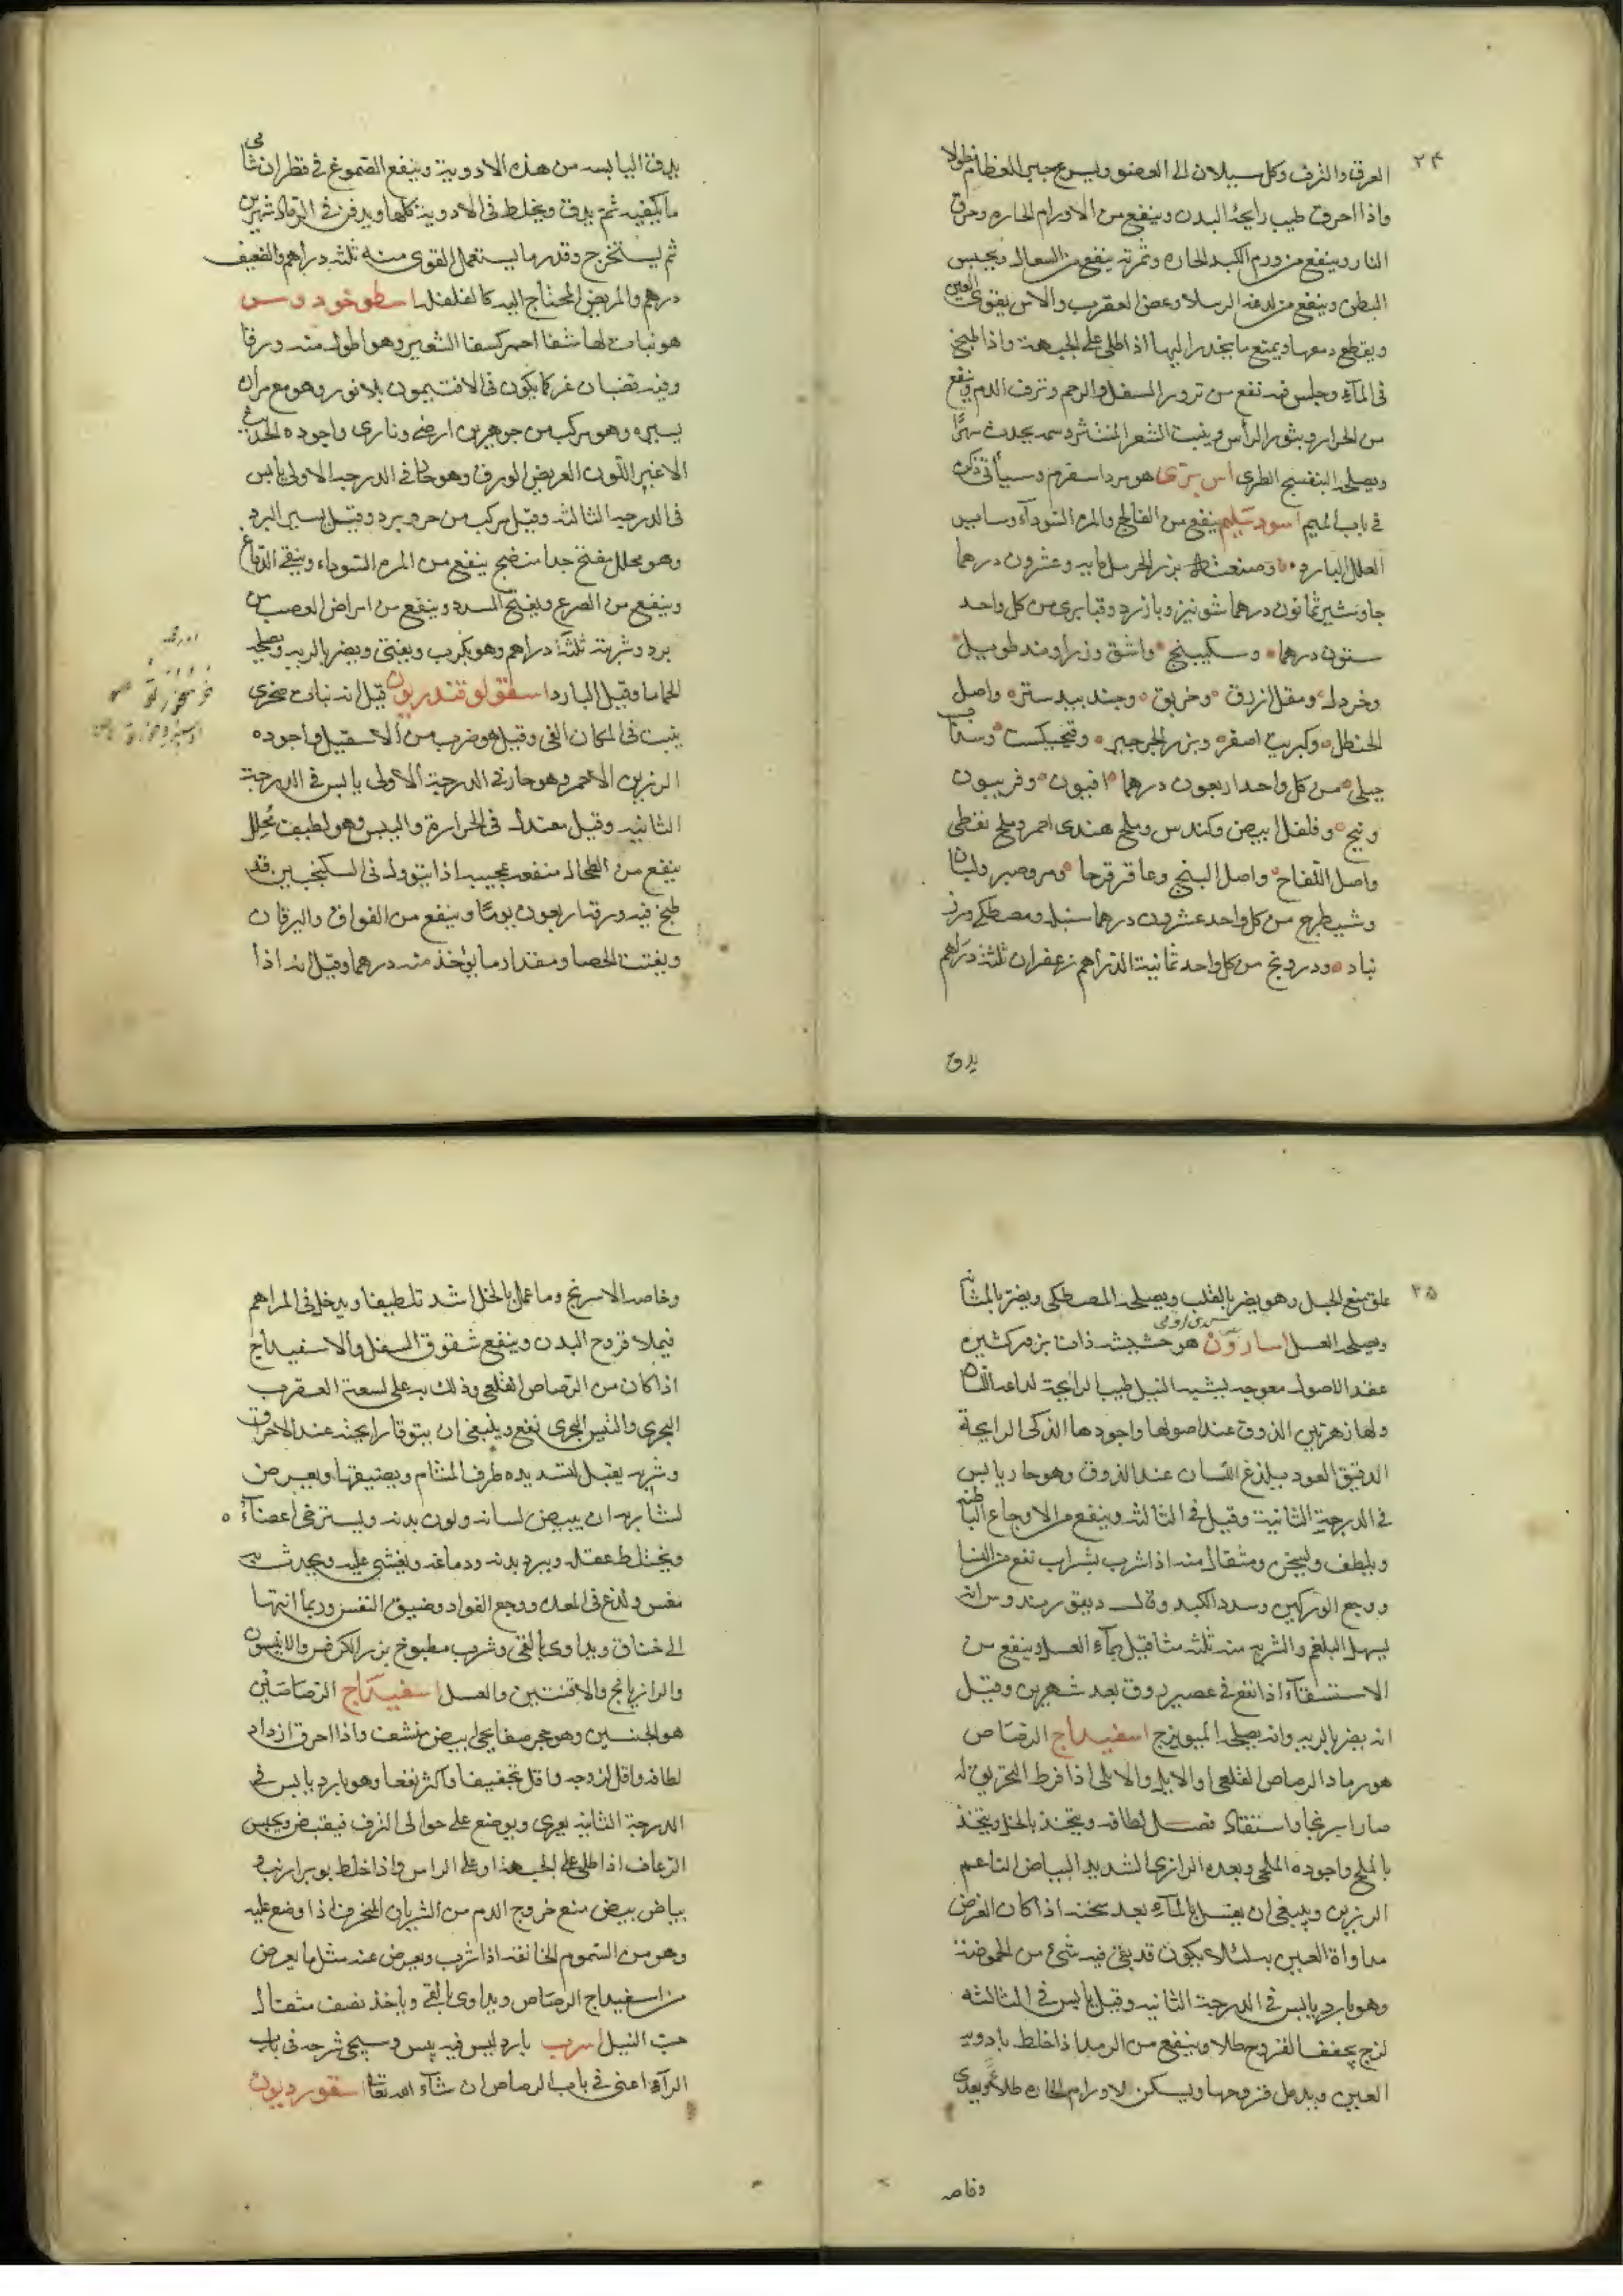 ٢٤
العرق والنزف وكل سيلان الى العضو ويسرع جبر العظام نطولا
واذا احرق طيب رايحة البدن وينفع من الاورام الحاره وحرق
النار وينفع من ورم الكبد الحاره وثمرته ينفع من السعال ويحبس
البطن وينفع من لدغه الرتيلا وعض العقرب والاس يقوى العين
ويقطع دمعها ويمنع ما ينحدر اليها اذا طلى على الجبهة واذا طبخ
فى الماء وجلس فيه نفع من السفل والرحم ونزف الدم وينفع
من الحرار وبثور الرأس وينبت الشعر المنتثر وسمه يحدث سهرًا
ويصلحه البنفسج الطرى اس برى هو مرداسفرم وسيأتى ذكره
فى باب الميم اسود سليم ينفع من الفالج والمره السوداء وساير
العلل البارده وصنعته بزر الحرمل مايه وعشرون درهما
جاوشير ثمانون درهما شونيز وبازرد وقنابرى من كل واحد
ستون درهما وسكبينج واشق وزراوند طويل
وخردل ومقل ازرق وخربق وجندبيدستر واصل
الحنظل وكبريت اصفر وبزر الجرجير وفنجنكست وسذاب
جبلى من كل واحد اربعون درهما افيون وفربيون
وبنج وفلفل ابيض وكندس وملح هندى احمر وملح نفطى
واصل اللفاح واصل البنج وعاقرقرحا ومر وصبر ولبان
وشيطرج من كل واحد عشرون درهما سنبل ومصطكى وزر
نباد ودرونج من كل واحد ثمانية الدراهم زعفران ثلثة دراهم
يدق
يدق اليابسه من هذه الادوية وينقع الصموغ فى قطران شامى
ما يكفيه ثم يدق ويخلط فى الادوية كلها ويدفن فى الرماد شهرين
ثم يستخرج وقدر ما يستعمل القوى منه ثلثه دراهم والضعيف
درهم والمريض المحتاج اليه كالفلفل اسطوخودوس
هو نبات لها سفا احمر كسفا الشعير وهو اطول منه ورقا
وفيه قضبان غبر كما يكون فى الافتيمون بلا نور وهو مع مراره
يسيره وهو مركب من جوهرين ارضى ونارى واجوده الحديث
الاغبر اللون العريض الورق وهو حار فى الدرجه الاولى يابس
فى الدرجه الثالثه وقيل مركب من حر وبرد وقيل يسير البرد
وهو محلل مفتح جدا منضج ينفع من المره السوداء وينقى الدماغ
وينفع من الصرع ويفتح السدد وينفع من امراض العصب من
برد وشربته ثلثة دراهم وهو يكرب ويغثى ويضر بالريه ويصلحه
الحماما وقيل البارد اسقولوقندريون قيل انه نبات صخرى
ينبت فى المكان الفى وقيل هو ضرب من الاسقيل واجوده
الرزين الاحمر وهو حار فى الدرجة الاولى يابس فى الدرجة
الثانيه وقيل معتدل فى الحرارة واليبس وهو لطيف محلل
ينفع من الطحال منفعه عجيبه اذا يتوول فى السكنجبين قد
طبخ فيه ورقه اربعون يومًا وينفع من الفواق واليرقان
ويفتت الحصا ومقدار ما يؤخذ منه درهم وقيل انه اذا
٢٥
علق منع الحبل وهو يضر بالقلب ويصلحه المصطكى ويضر بالمثانه
ويصلحه العسل اسارون هو حشيشه ذات بزر كثيره
عقد الاصول معوجه يشبه النيل طيب الرايحة لداعه اللسان
ولها زهر بين الورق عند اصولها واجودها الذكى الرايحة
الدقيق العود يلذغ اللسان عند الذوق وهو حار يابس
فى الدرجة الثانية وقيل فى الثالثه وينفع من الاوجاع الباطنه
ويلطف ويسخن ومثقال منه اذا شرب بشراب نفع من النسا
ووجع الوركين وسدد الكبد وقال ديقوريدوس انه
يسهل البلغم والشربه منه ثلثه مثاقيل بماء العسل وينفع من
الاستسقآء اذا نقع فى عصير وروق بعد شهرين وقيل
انه يضر بالريه وانه يصلحه الميويزج اسفيداج الرصاص
هو رماد الرصاص القلعى او الابار والابار اذا فرط التحريق له
صار اسرنجا واستفاد فضل لطافه ويتخذ بالخل ويتخذ
بالملح واجوده الملحى وبعده الرازى الشديد البياض الناعم
الرزين وينبغى ان يغسل بالمآء بعد سحنه اذا كان الغرض
مداواة العين به لئلا يكون قد بقى فيه شئ من الحموضة
وهو بارد يابس فى الدرجة الثانيه وقيل يابس فى الثالثه
لزج يجفف القروح طلا وينفع من الرمد اذا خلط بادويه
العين ويدمل قروحها ويسكن الاورام الحاره طلاءً ويغذى
وخاصه
وخاصه الاسرنج وما عمل بالخل اشد تلطيفا ويدخل فى المراهم
فيملا قروح البدن وينفع شقوق السفل والاسفيداج
اذا كان من الرصاص القلعى وذلك به على لسعة العقرب
البحرى والتنين البحرى نفع وينبغى ان يتوقا رايحته عند الاحراق
وشربه يقتل لتسديده طرف المشام ويضيقها ويعرض
لشاربه ان يبيض لسانه ولون بدنه ويسترخى اعضآؤه
ويختلط عقله ويبرد بدنه ودماغه ويغشى عليه ويحدث
مغس ولذع فى المعده ووجع الفواد وضيق النفس وربما انتها
الى خناق ويداوى بالقى وشرب مطبوخ بزر الكرفس والانيسون
والرازيانج والافسنتين والعسل اسفيداج الرصاصين
هو الجنسين وهو حجر صفايحى ابيض منشف واذا احرق ازداد
لطافه واقل لزوجه واقل تجفيفا واكثر نفعا وهو بارد يابس فى
الدرجة الثانيه يغرى ويوضع على حوالى النزف فيقبض ويحبس
الرعاف اذا طلى على الجبهة او على الراس واذا خلط بوبر ارنب و
بياض بيض منع خروج الدم من الشريان المنخرق اذا وضع عليه
وهو من السموم الخانقه اذا شرب ويعرض عنه مثل ما يعرض
من اسفيداج الرصاص ويداوى بالقى وياخذ نصف مثقال
حب النيل اسرب بارد ليس فيه يبس وسيجى شرحه فى باب
الرآء اعنى فى باب الرصاص ان شآء الله تعا اسقورديون